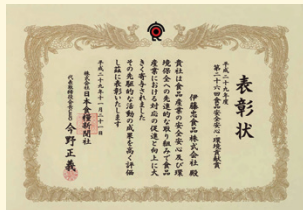 表彰状
平成二十九年度
第二十六回食品安全安心・環境貢献賞
伊藤忠食品株式会社殿
貴社は食品産業の安全安心及び環
境保全への先進的な取り組みで食品
産業における対応の促進と向上に大
きく寄与されました
その先駆的な活動の成果を高く評価
し茲に表彰いたします
平成二十九年十一月二十一日
株式会社日本食糧新聞社
代表取締役会長CEO 今野正義